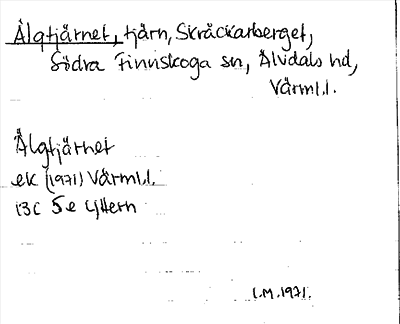 Älgtjärnet, tjärn, Skråckarberget,
Södra Finnskoga sn, Älvdals hd,
Värml.l.
Älgtjärnet
ek (1971) Värml.l.
13C 5e Yttern
L.M. 1971.